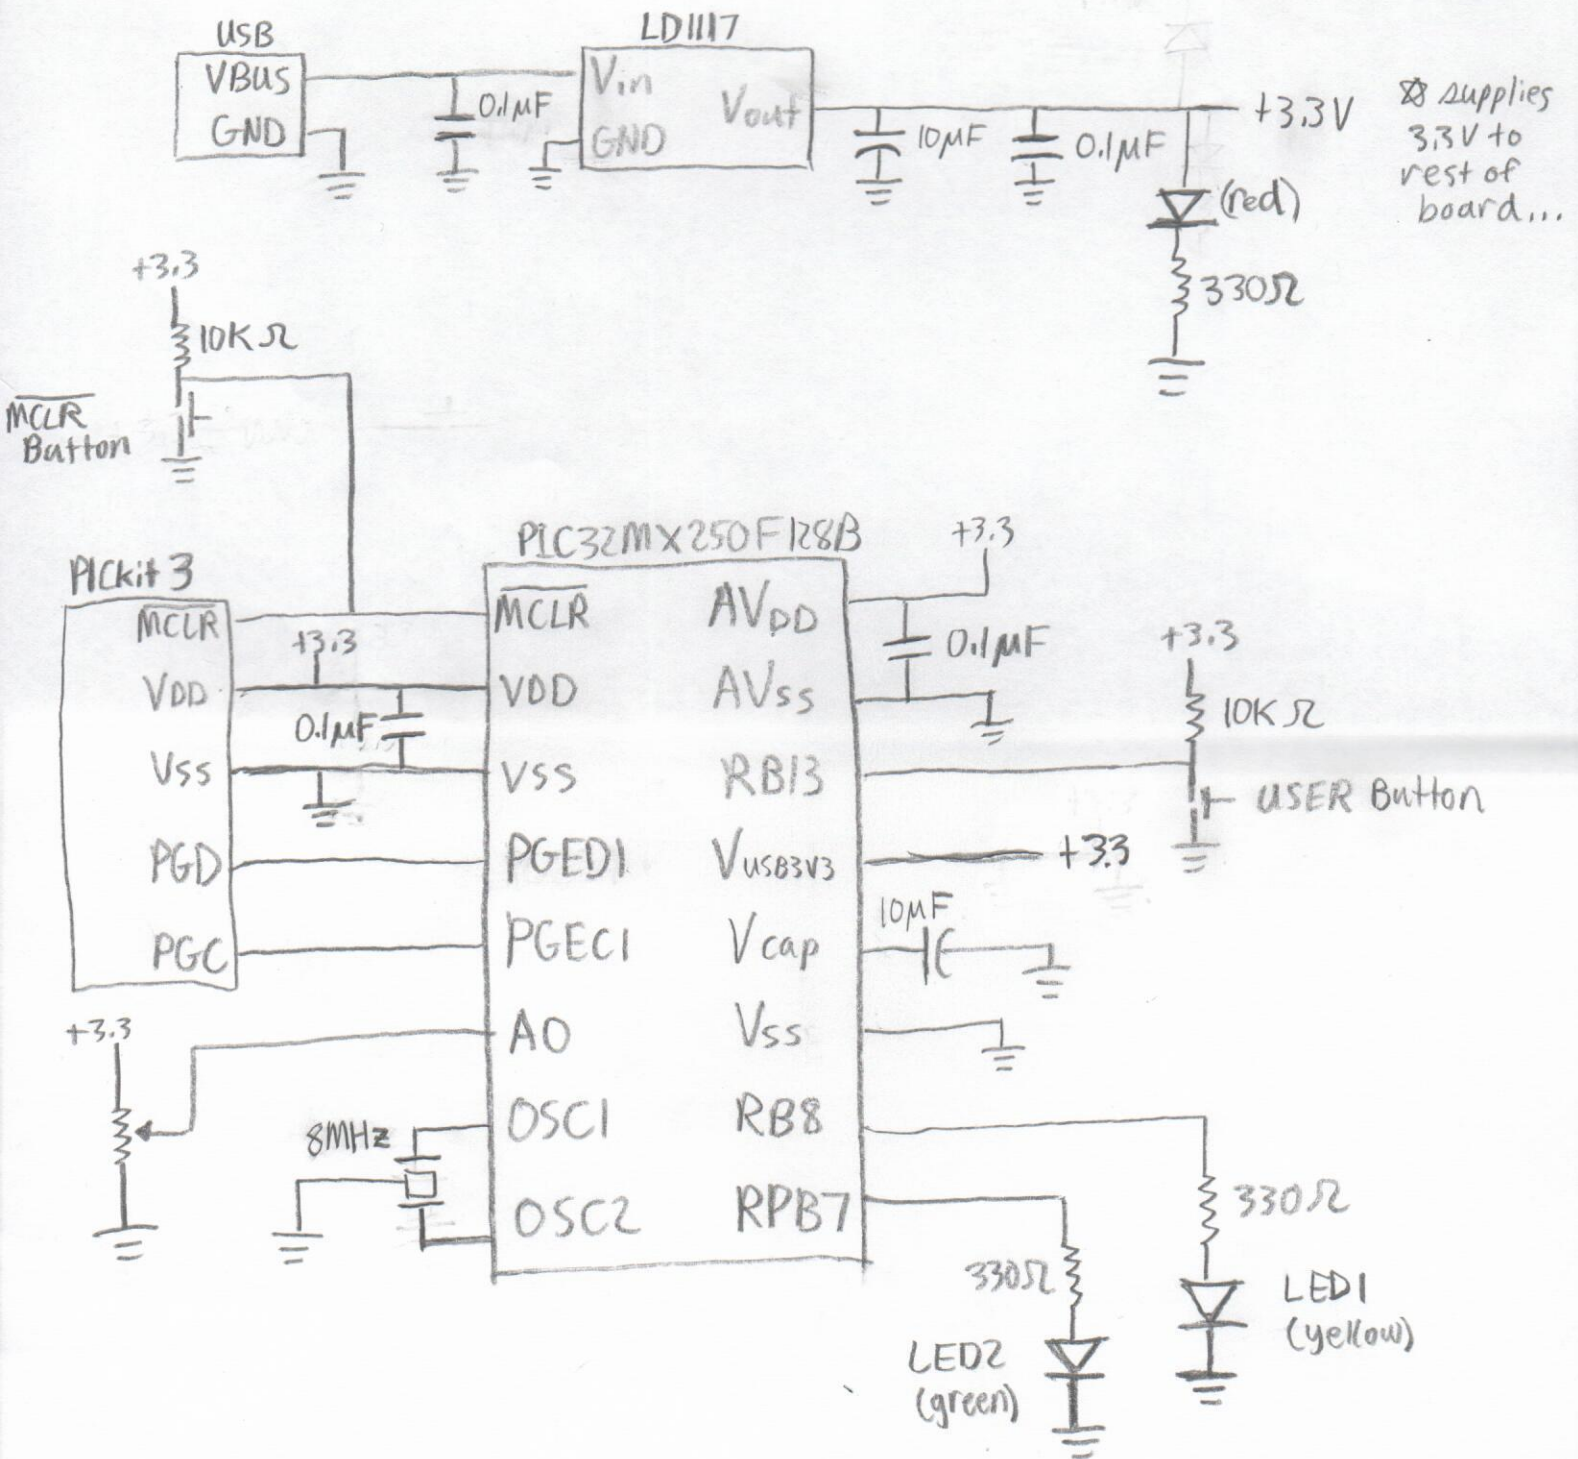 USB
VBUS
GND
0.1µF
LD1117
Vin
GND
Vout
10µF
0.1µF
+3.3V
(red)
330Ω
☆ supplies
3.3V to
rest of
board...
+3.3
10KΩ
MCLR
Button
PICkit 3
MCLR
VDD
VSS
PGD
PGC
+3.3
0.1µF
PIC32MX250F128B
MCLR
VDD
VSS
PGED1
PGEC1
A0
OSC1
OSC2
AVDD
AVSS
RB13
VUSB3V3
Vcap
VSS
RB8
RPB7
+3.3
0.1µF
+3.3
10KΩ
USER Button
+3.3
10µF
+3.3
8MHz
330Ω
LED1
(yellow)
330Ω
LED2
(green)